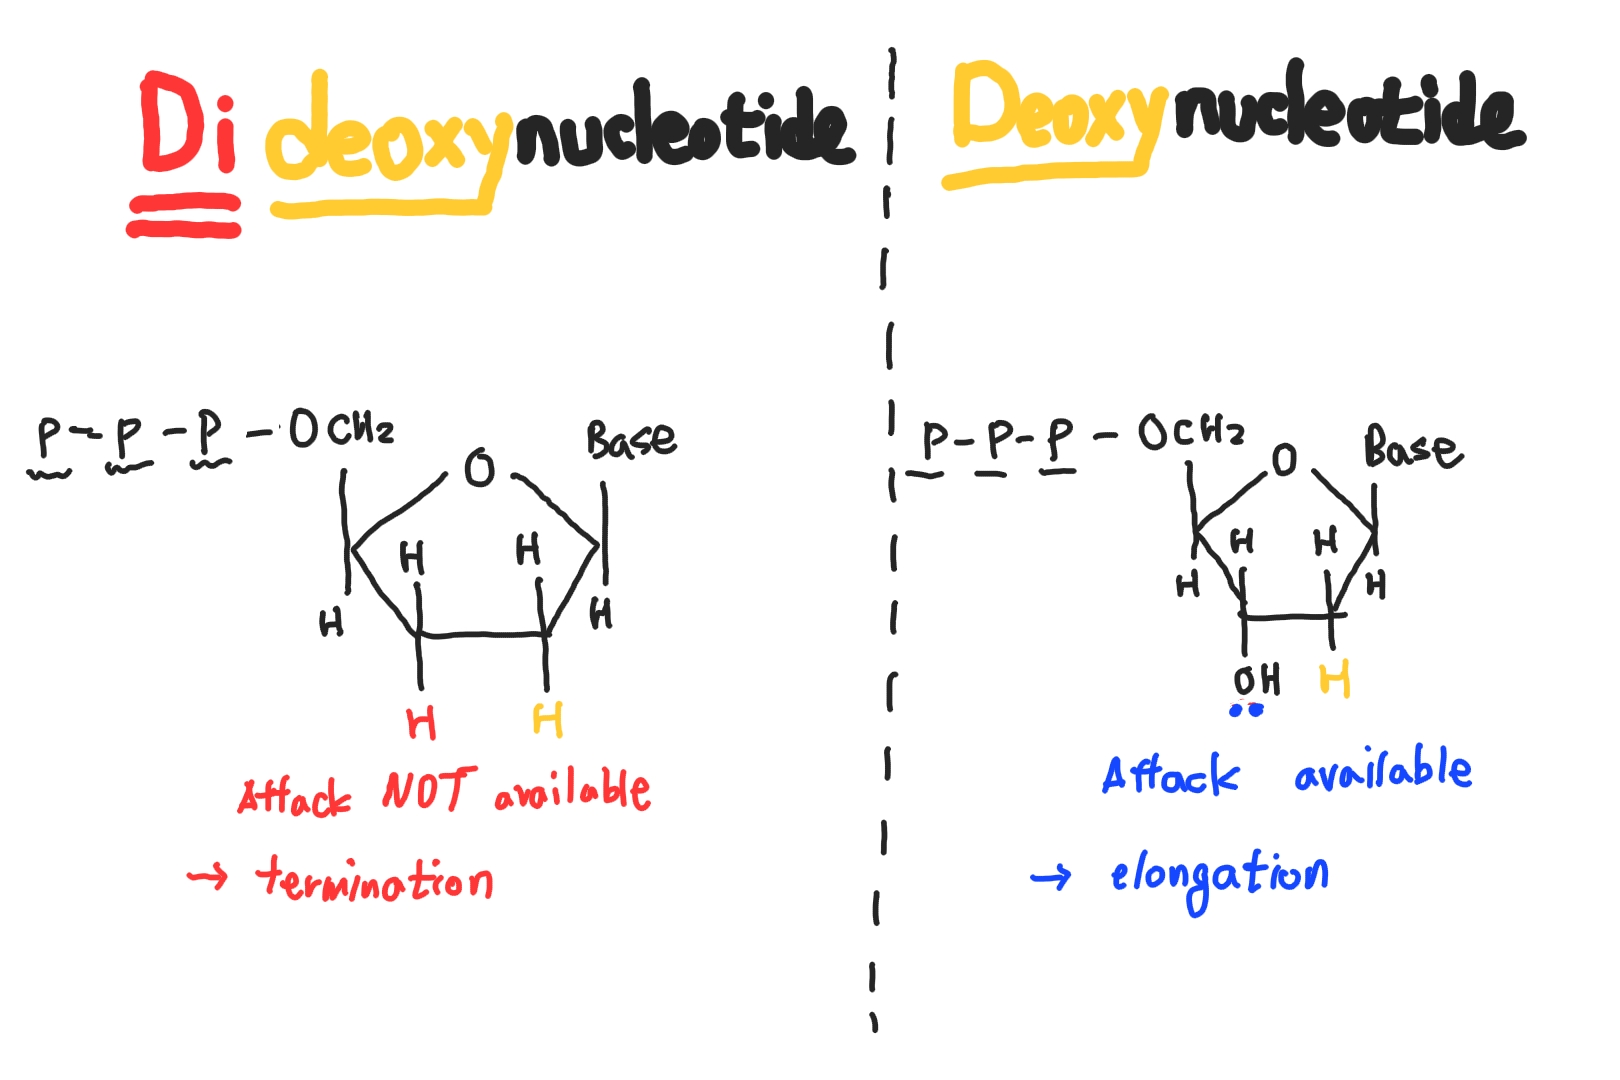 Di deoxynucleotide
P-P-P-OCH2
O
Base
H
H
H
H
H
H
Attack NOT available
→ termination
Deoxynucleotide
P-P-P-OCH2
O
Base
H
H
H
H
OH
H
Attack available
→ elongation